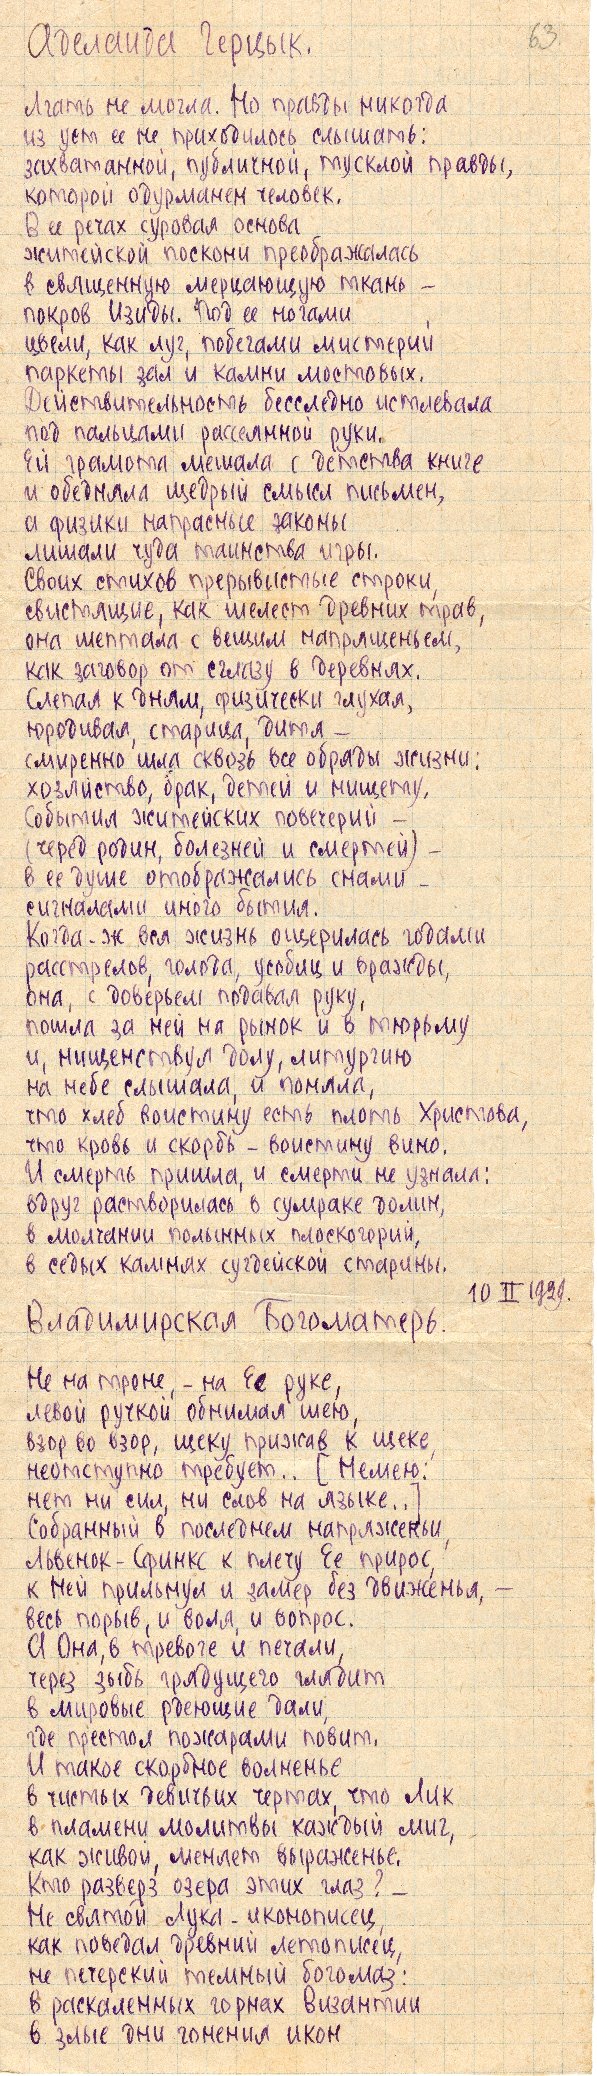 Аделаида Герцык.
63
Лгать не могла. Но правды никогда
из уст ее не приходилось слышать:
захватанной, публичной, тусклой правды,
которой одурманен человек.
В ее речах суровая основа
житейской поскони преображалась
в священную мерцающую ткань –
покров Изиды. Под ее ногами
цвели, как луг, побегами мистерий
паркеты зал и камни мостовых.
Действительность бесследно истлевала
под пальцами рассеянной руки.
Ей грамота мешала с детства книге
и обедняла щедрый смысл письмен,
а физики напрасные законы
лишали чуда таинства игры.
Своих стихов прерывистые строки,
свистящие, как шелест древних трав,
она шептала с вещим напряженьем,
как заговор от сглазу в деревнях.
Слепая к дням, физически глухая,
юродивая, старица, дитя –
смиренно шла сквозь все обряды жизни:
хозяйство, брак, детей и нищету.
События житейских повечерий –
(черед родин, болезней и смертей) –
в ее душе отображались снами –
сигналами иного бытия.
Когда-ж вся жизнь ощерилась годами
расстрелов, голода, усобиц и вражды,
она, с доверьем подавая руку,
пошла за ней на рынок и в тюрьму
и, нищенствуя долу, литургию
на небе слышала, и поняла,
что хлеб воистину есть плоть Христова,
что кровь и скорбь – воистину вино.
И смерть пришла, и смерти не узнала:
вдруг растворилась в сумраке долин,
в молчании полынных плоскогорий,
в седых камнях сугдейской старины.
10 II 1929.
Владимирская Богоматерь.
Не на троне, – на Ее руке,
левой ручкой обнимая шею,
взор во взор, щеку прижав к щеке,
неотступно требует.. [Немею:
нет ни сил, ни слов на языке..]
Собранный в последнем напряженьи,
Львенок-Сфинкс к плечу Ее прирос,
к Ней прильнул и замер без движенья, –
весь порыв, и воля, и вопрос.
А Она, в тревоге и печали,
через зыбь грядущего глядит
в мировые рдеющие дали,
где престол пожарами повит.
И такое скорбное волненье
в чистых девичьих чертах, что Лик
в пламени молитвы каждый миг,
как живой, меняет выраженье.
Кто разверз озера этих глаз? –
Не святой Лука-иконописец,
как поведал древний летописец,
не печерский темный богомаз:
в раскаленных горнах Византии
в злые дни гонения икон